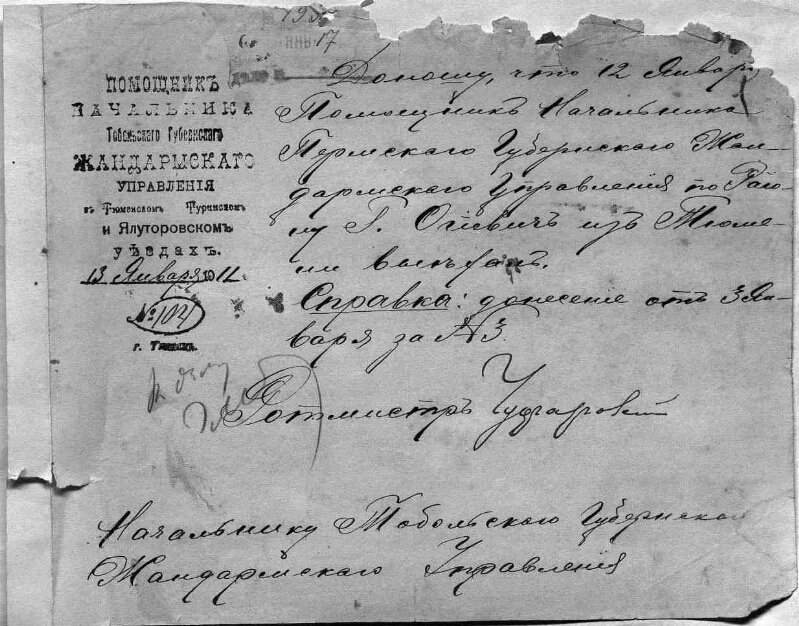 6 ЯНВ 17
ПОМОЩНИКЪ
НАЧАЛЬНИКА
Тобольскаго Губернскаго
ЖАНДАРМСКАГО
УПРАВЛЕНІЯ
въ Тюменскомъ Туринскомъ
и Ялуторовскомъ
УѢЗДАХЪ.
13 Января 1911
№ 104
г. Тюмень.
Доношу, что 12 Января
Помощникъ Начальника
Пермскаго Губернскаго Жан-
дармскаго Управленія по
Г. изъ Тюме-
ни выѣхалъ.
Справка: донесеніе отъ 3 Ян-
варя за № 3.
К делу
Ротмистръ
Начальнику Тобольскаго Губернскаго
Жандармскаго Управленія